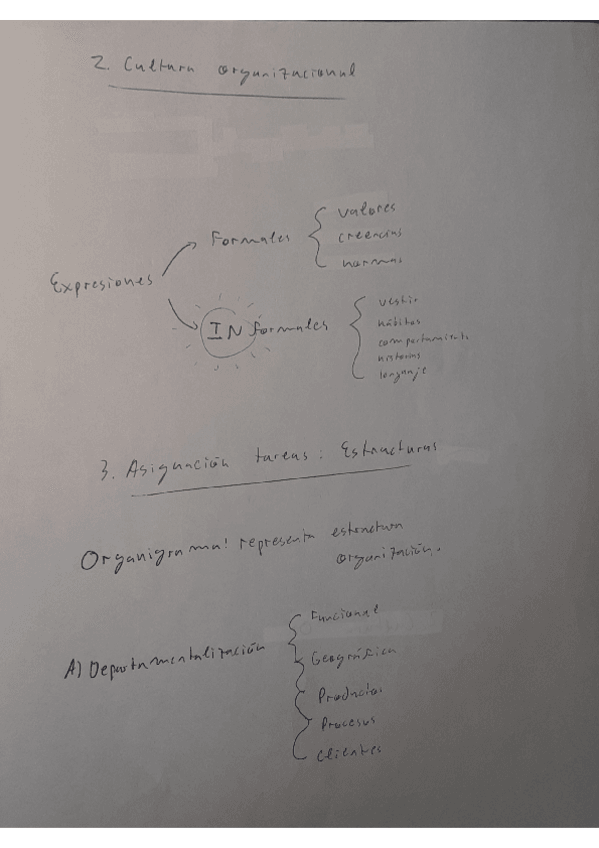 2. Cultura organizacional
Expresiones
Formales
valores
creencias
normas
INformales
vestir
hábitos
comportamiento
historias
lenguaje
3. Asignación tareas: Estructuras
Organigrama: representa estructura
organización.
A) Departamentalización
Funcional
Geográfica
Productos
Procesos
Clientes